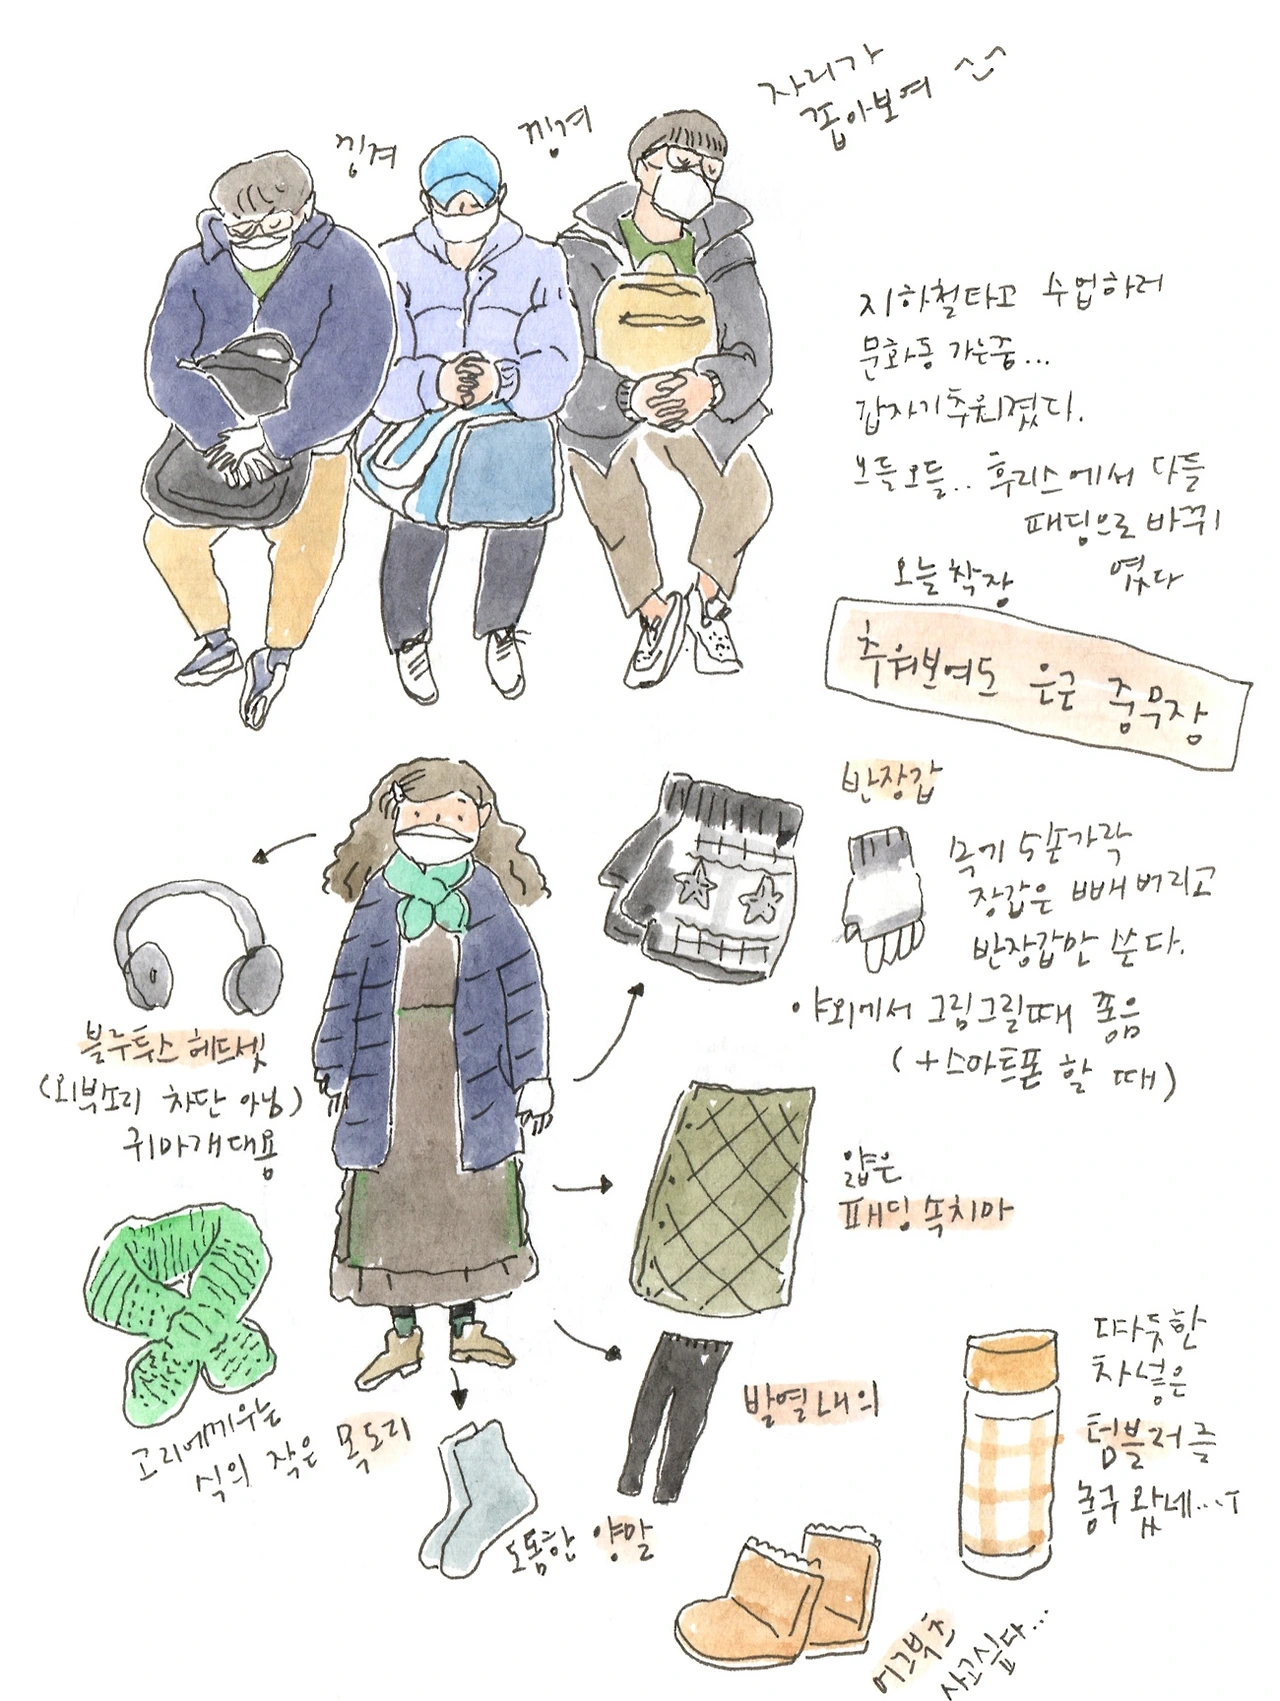 낑겨
낑겨
자리가
좁아보여 ^-^
지하철타고 수업하러
문화동 가는중...
갑자기추워졌다.
오들오들.. 후리스에서 다들
패딩으로 바뀌
었다
오늘 착장
추워보여도 은근 중무장
반장갑
두기 5손가락
장갑은 빼버리고
반장갑만 쓴다.
야외에서 그림그릴때 좋음
(+스마트폰 할 때)
블루투스 헤드셋
(외부소리 차단 아님)
귀마개대용
얇은
패딩 속치마
고리에끼우는
식의 작은 목도리
발열내의
도톰한 양말
따듯한
차 넣은
텀블러를
놓구 왔네...ㅜ
어그부츠
사고싶다...